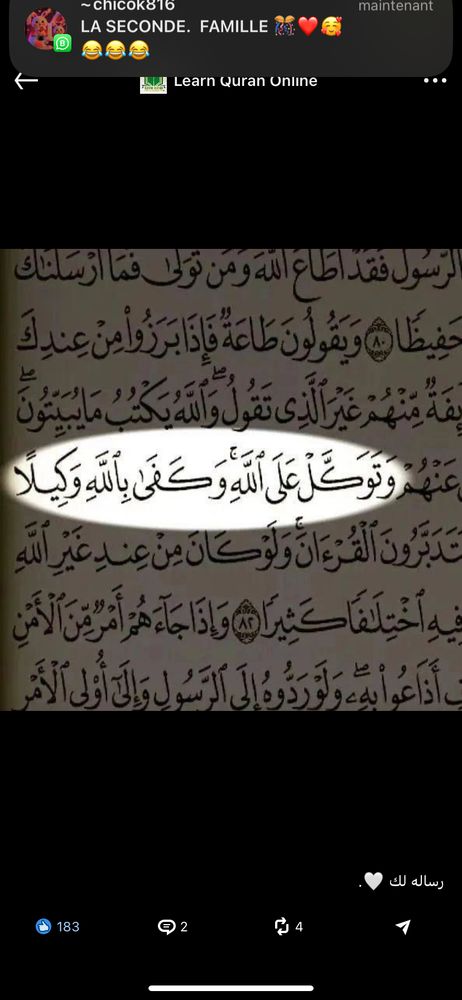 ~chicok816
maintenant
LA SECONDE. FAMILLE 🎊❤️🥰
😂😂😂
Learn Quran Online
الرَّسُولَ فَقَدْ أَطَاعَ اللَّهَ وَمَن تَوَلَّىٰ فَمَا أَرْسَلْنَاكَ
حَفِيظًا ٨٠ وَيَقُولُونَ طَاعَةٌ فَإِذَا بَرَزُوا مِنْ عِندِكَ
مِّنْهُمْ غَيْرَ الَّذِي تَقُولُ ۖ وَاللَّهُ يَكْتُبُ مَا يُبَيِّتُونَ ۖ
عَنْهُمْ وَتَوَكَّلْ عَلَى اللَّهِ ۚ وَكَفَىٰ بِاللَّهِ وَكِيلًا
الْقُرْءَانَ ۚ وَلَوْ كَانَ مِنْ عِندِ غَيْرِ اللَّهِ
فِيهِ اخْتِلَٰفًا كَثِيرًا ٨٢ وَإِذَا جَاءَهُمْ أَمْرٌ مِّنَ الْأَمْنِ
أَذَاعُوا بِهِ ۖ وَلَوْ رَدُّوهُ إِلَى الرَّسُولِ وَإِلَىٰ أُولِي الْأَمْرِ
رساله لك 🤍.
183
2
4